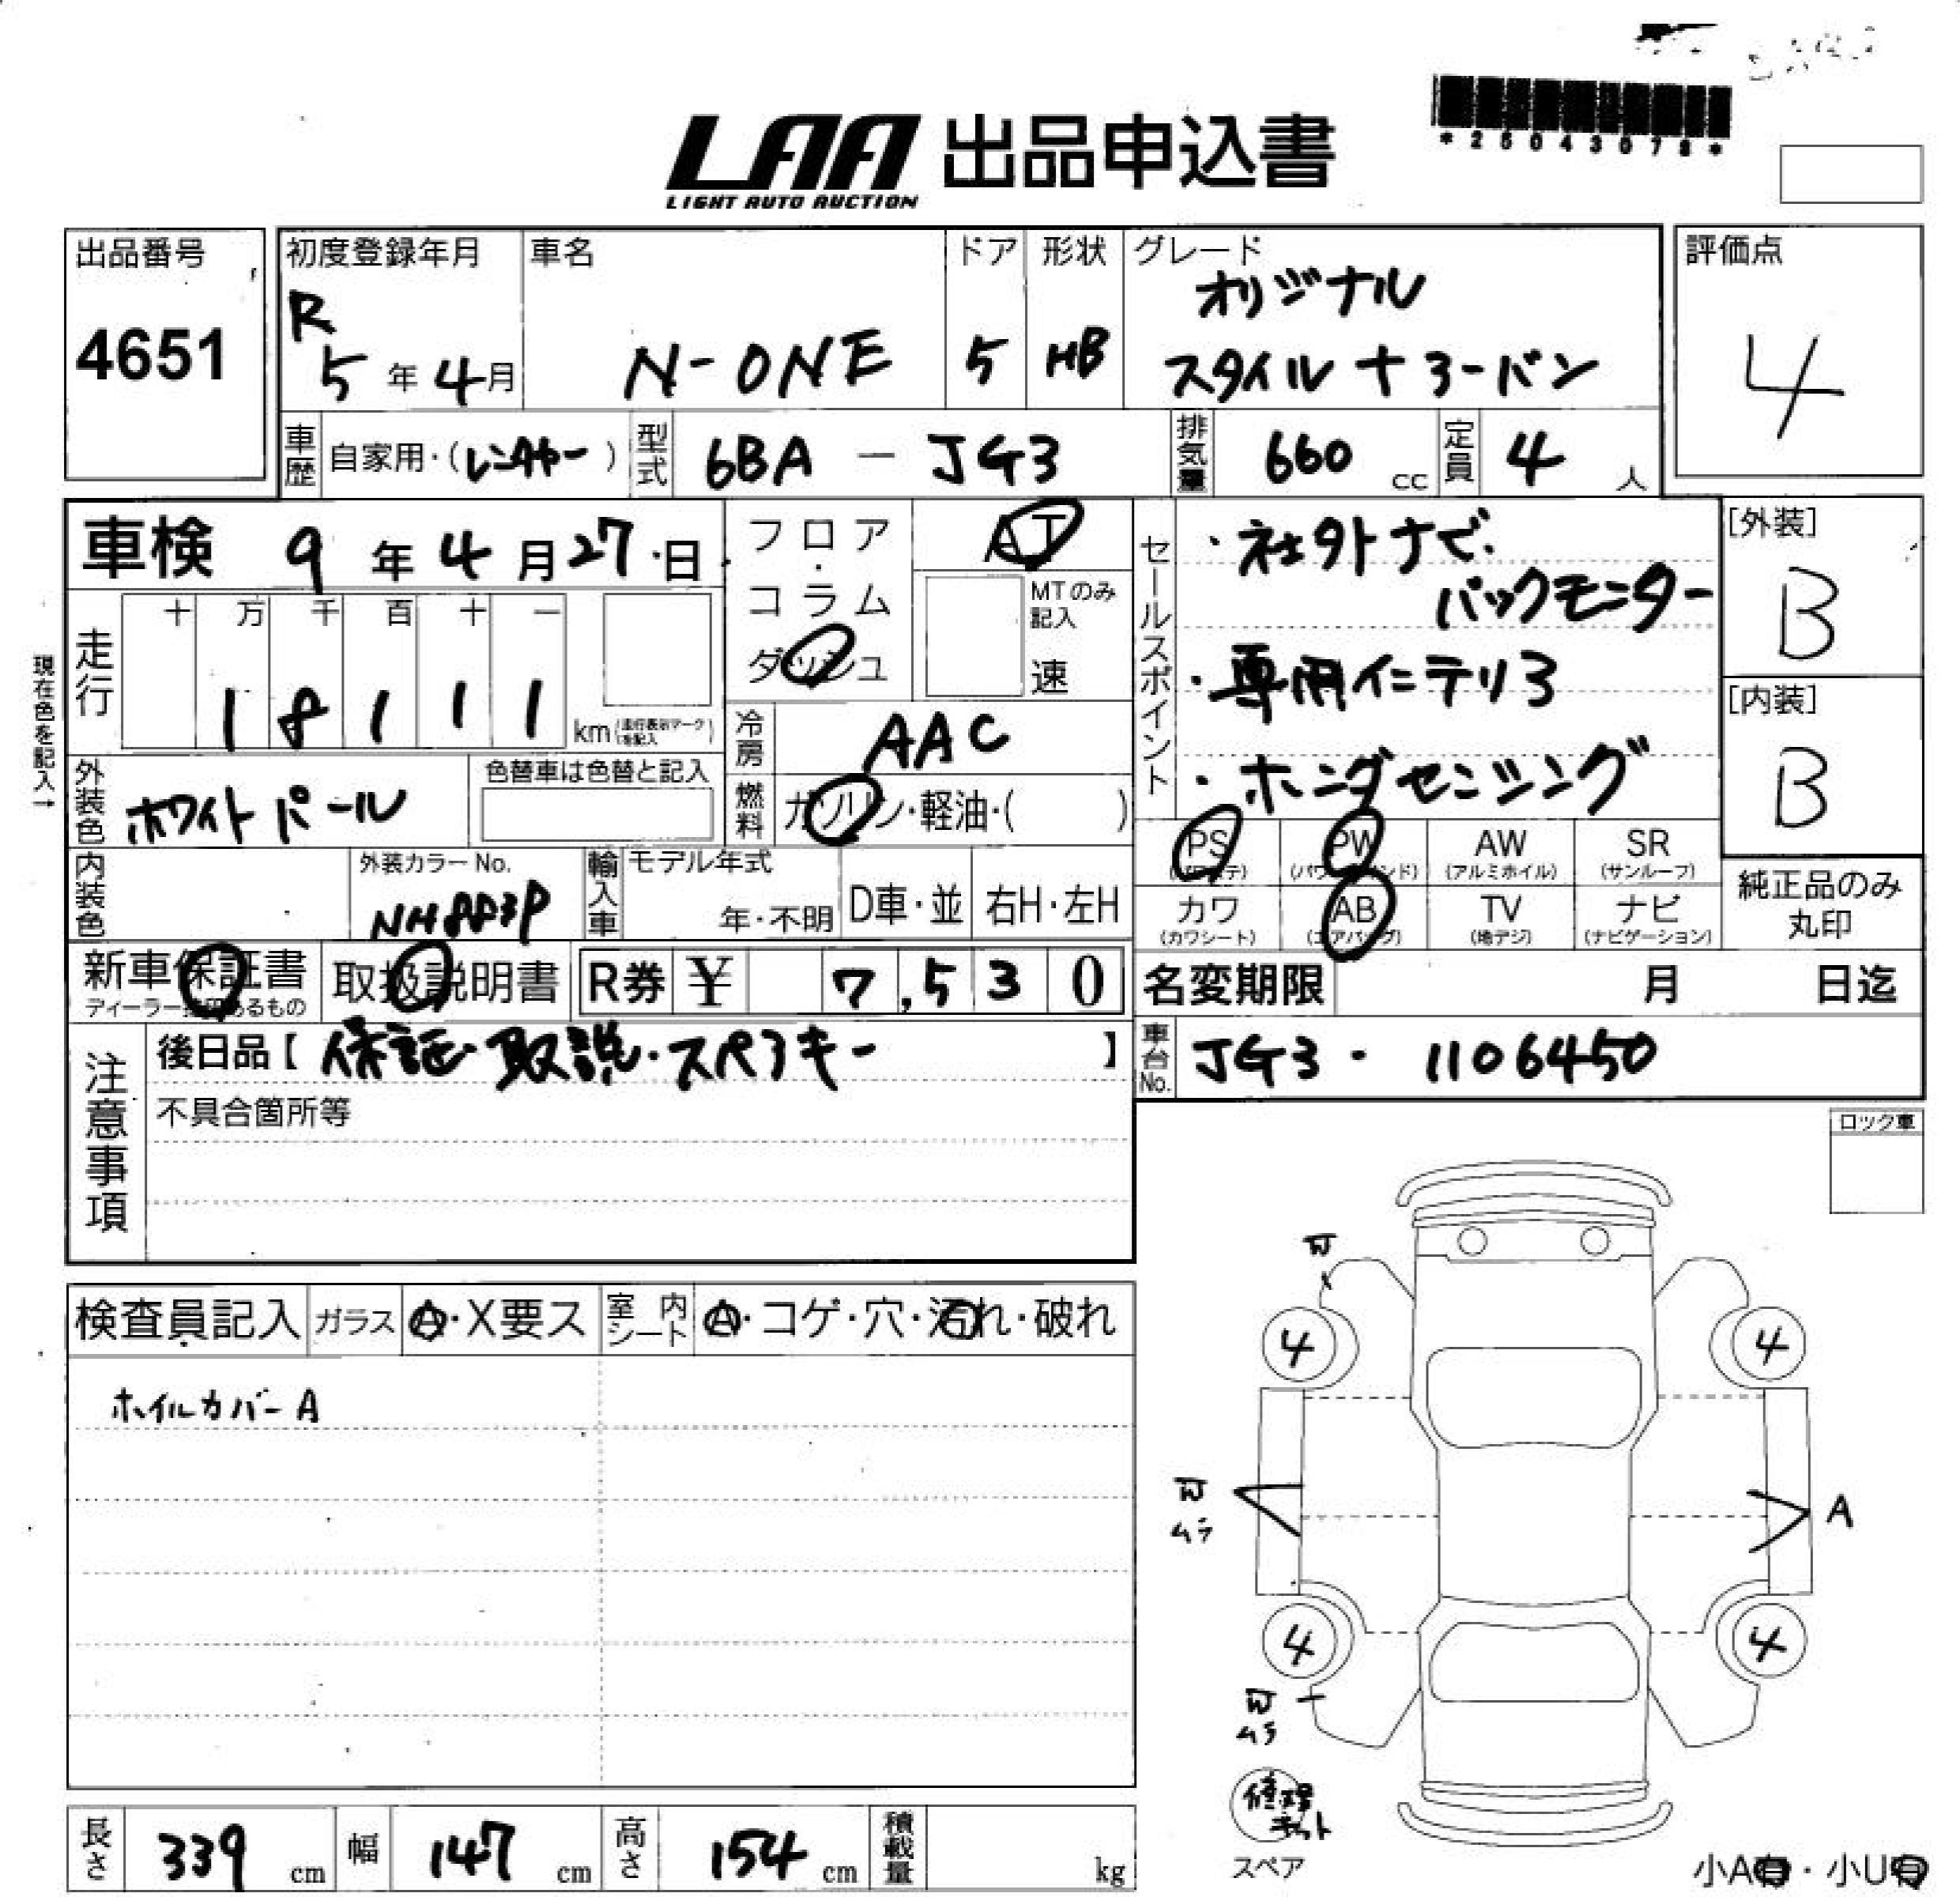 LAA 出品申込書
LIGHT AUTO AUCTION
*25043078*
出品番号
4651
初度登録年月
R
5年4月
車名
N-ONE
ドア
5
形状
HB
グレード
オリジナル
スタイル+ラーバン
評価点
4
車歴 自家用・(レンタカー)
型式 6BA - JG3
排気量 660 cc
定員 4人
車検 9年4月27日
フロア・コラム
ダッシュ
AT
MTのみ記入
速
走行 十 万 千 百 十 一
18111 km (走行表示マークを記入)
現在色を記入→
冷房 AAC
燃料 ガソリン・軽油・( )
外装色 ホワイトパール
色替車は色替と記入
内装色
外装カラーNo.
NH883P
輸入車 モデル年式
年・不明 D車・並 右H・左H
セールスポイント
・社外ナビ・
バックモニター
・専用インテリア
・ホンダセンシング
[外装]
B
[内装]
B
PS PW AW(アルミホイル) SR(サンルーフ)
カワ(カワシート) AB(エアバッグ) TV(地デジ) ナビ(ナビゲーション)
純正品のみ
丸印
新車保証書 取扱説明書 R券 ¥ 7,530
名変期限 月 日迄
車台No. JG3 - 1106450
注意事項
後日品【 保証・取説・スペアキー 】
不具合箇所等
ロック車
検査員記入 ガラス A・X要ス 室内シート A・コゲ・穴・汚れ・破れ
ホイルカバーA
4
4
ムラ
A
4
4
ムラ
修理キット
スペア
長さ 339 cm 幅 147 cm 高さ 154 cm 積載量 kg
小A有・小U有